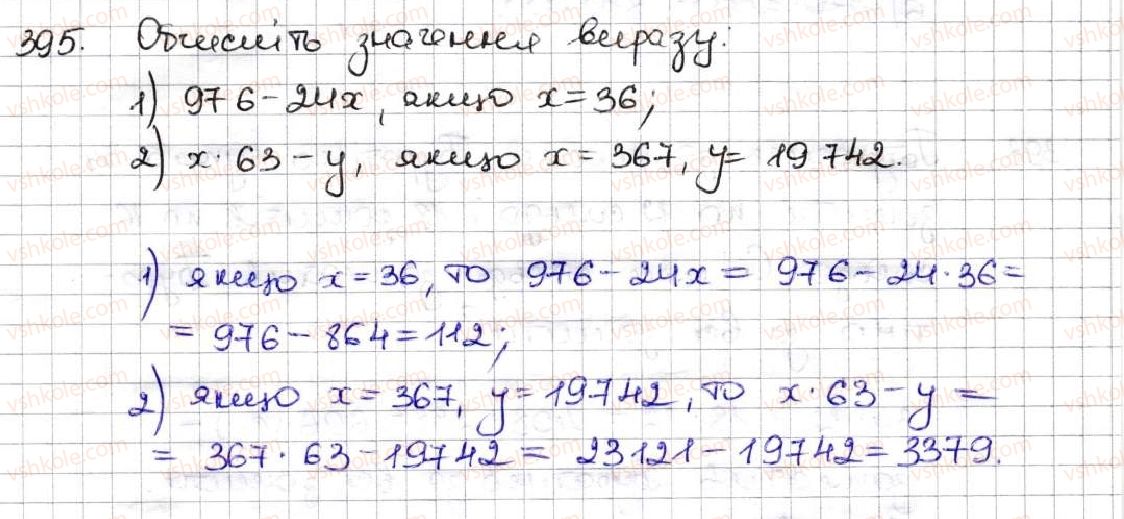 395. Обчисліть значення виразу:
1) 976-24x, якщо x=36;
2) x·63-y, якщо x=367, y=19 742.
1) якщо x=36, то 976-24x=976-24·36=
=976-864=112;
2) якщо x=367, y=19742, то x·63-y=
=367·63-19742=23121-19742=3379.